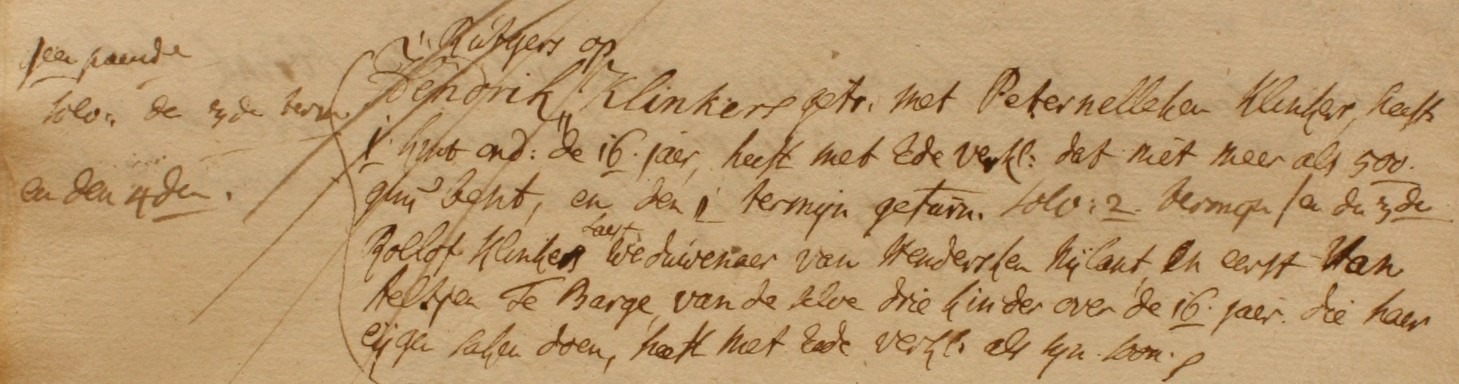 geen paende
solv: de 3de term
en den 4den.
Rutgers op
Hendrik Klinkers getr. met Peternelleken Klinkers, heeft
1 kint ond: de 16. jaer, heeft met Ede verkl: dat niet meer als 500.
bent, en den 1 termijn getaxn. solv: 2. termijn / en de 3de
Rollof Klinkers Laest weduwenaer van Hendersken Nijlant en eerst van
Aeltjen Te Barge, van de selve drie kinder over de 16. jaer. die haer
eijgen saken doen, heeft met Eede verkl. als sijn soon.